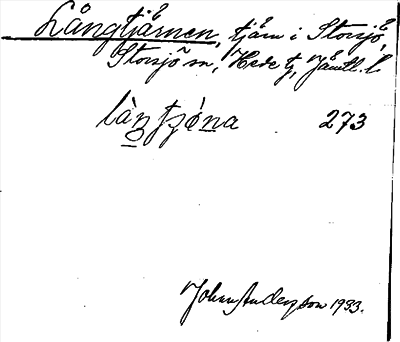 Långtjärnen, tjärn i Storsjö,
Storsjö sn, Hede tg, Jämtl. l.
làŋ tjǿna 273
John Anderzson 1933.